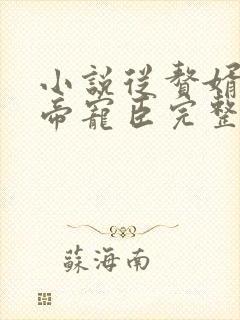 小說從贅婿
帝寵臣完整
蘇海南